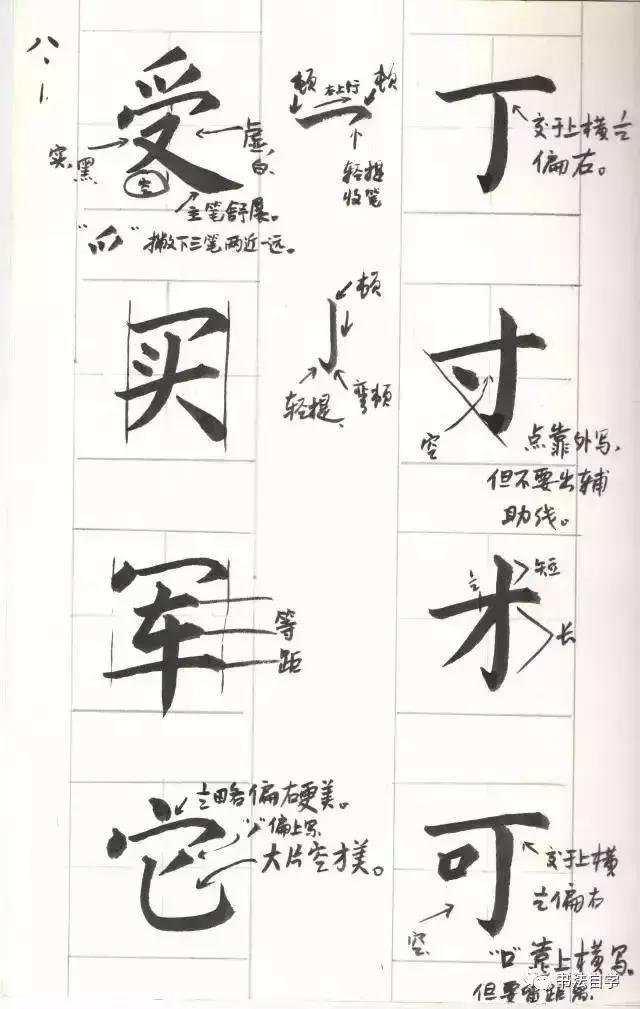 八、1
受
实,黑
虚,
白
空
主笔舒展。
“爪”撇下三笔两近一远。
顿
右上行
顿
轻提
收笔
丁
交于上横½
偏右。
买
顿
轻提
弯顿
寸
空
点靠外写,
但不要出辅
助线。
军
等
距
才
½
短
长
它
½略偏右更美。
偏上写
大片空才美。
可
交于上横
½偏右
空
“口”靠上横写。
但要留距离
书法自学